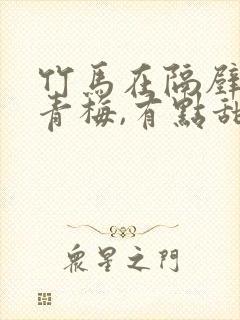 竹馬在隔壁
青梅,有點甜
眾星之門